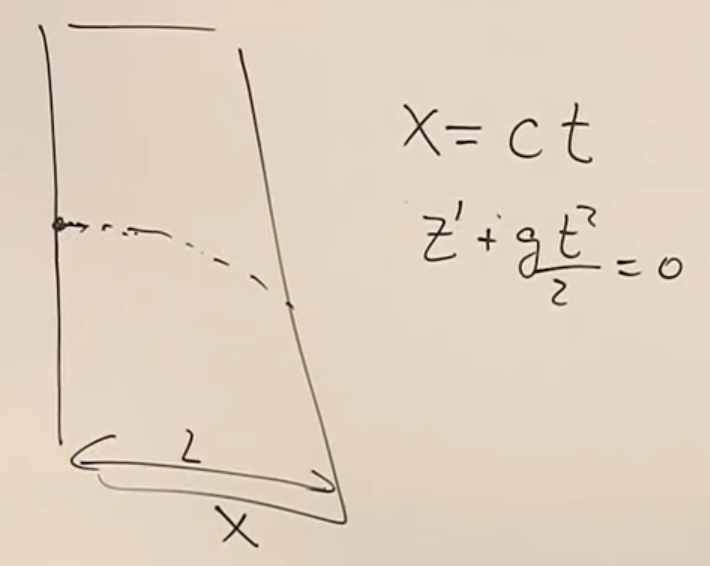 x = ct
z' + gt²/2 = 0
L
x